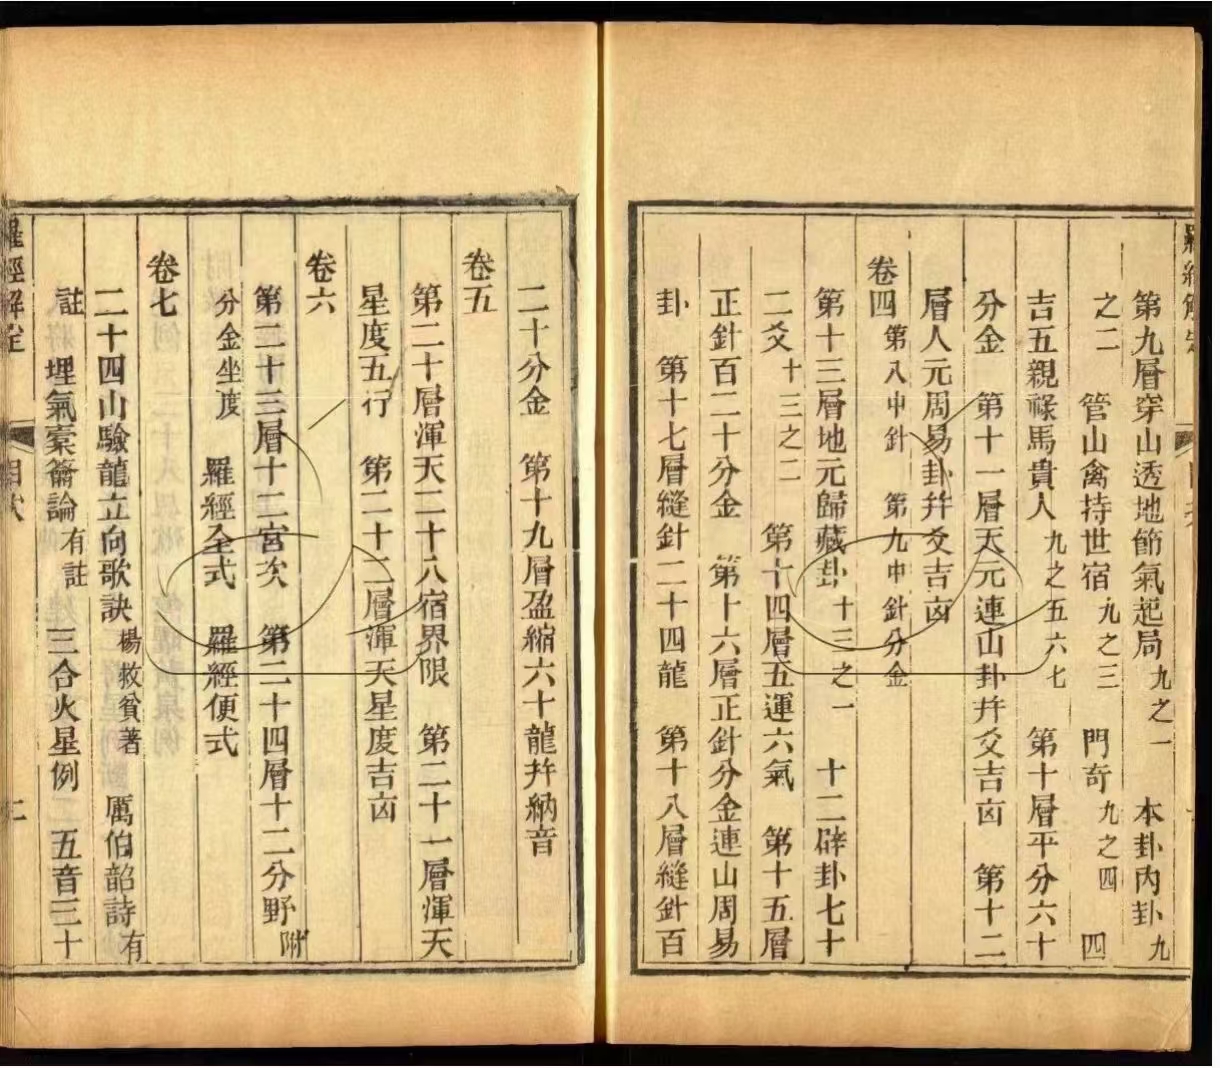 羅經解定
第九層穿山透地節氣起局九之一　本卦內卦九
之二　管山禽持世宿九之三　門奇九之四　四
吉五親祿馬貴人九之五六七　第十層平分六十
分金　第十一層天元連山卦幷爻吉凶　第十二
層人元周易卦幷爻吉凶
卷四第八中針　第九中針分金
第十三層地元歸藏卦十三之一　十二辟卦七十
二爻十三之二　第十四層五運六氣　第十五層
正針百二十分金　第十六層正針分金連山周易
卦　第十七層縫針二十四龍　第十八層縫針百
二十分金　第十九層盈縮六十龍幷納音
卷五
第二十層渾天二十八宿界限　第二十一層渾天
星度五行　第二十二層渾天星度吉凶
卷六
第二十三層十二宮次　第二十四層十二分野附
分金坐度　羅經全式　羅經便式
卷七
二十四山驗龍立向歌訣楊救貧著　厲伯韶詩有
註　埋氣橐籥論有註　三合火星例　五音三十
羅經解定　目次　二